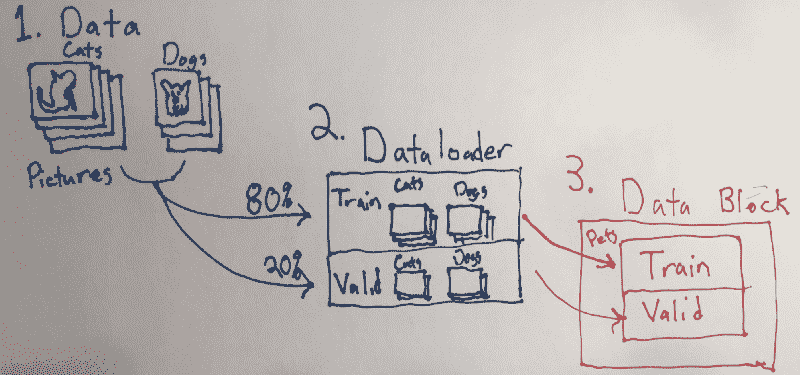 1. Data
Cats
Dogs
Pictures
80%
20%
2. Dataloader
Train
Cats
Dogs
Valid
Cats
Dogs
3. Data Block
Pets
Train
Valid